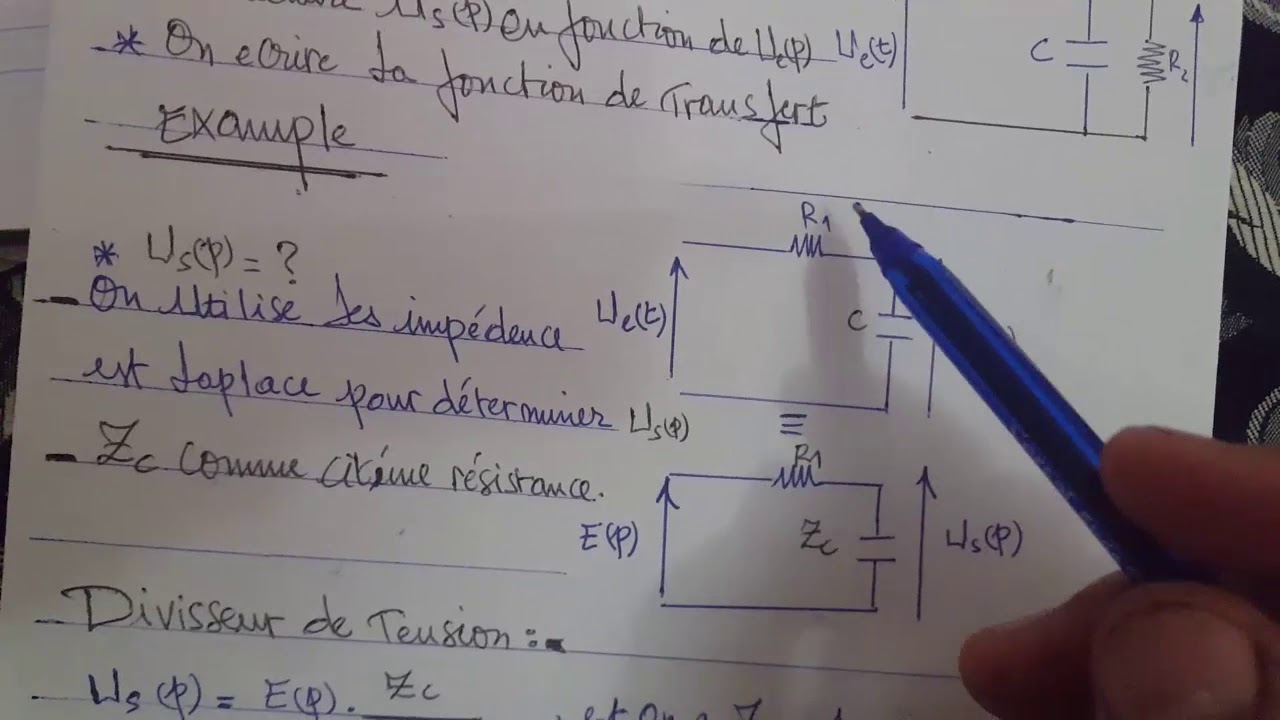 Us(p) en fonction de Ue(p)
Ue(t)
C
R2
* On ecrire la fonction de Transfert
Example
R1
* Us(p) = ?
- On utilise les impédence
Ue(t)
C
est laplace pour déterminer Us(p)
≡
R1
- Zc comme citéme résistance.
E(p)
Zc
Us(p)
- Divisseur de Tension :-
- Us(p) = E(p). Zc
et on a